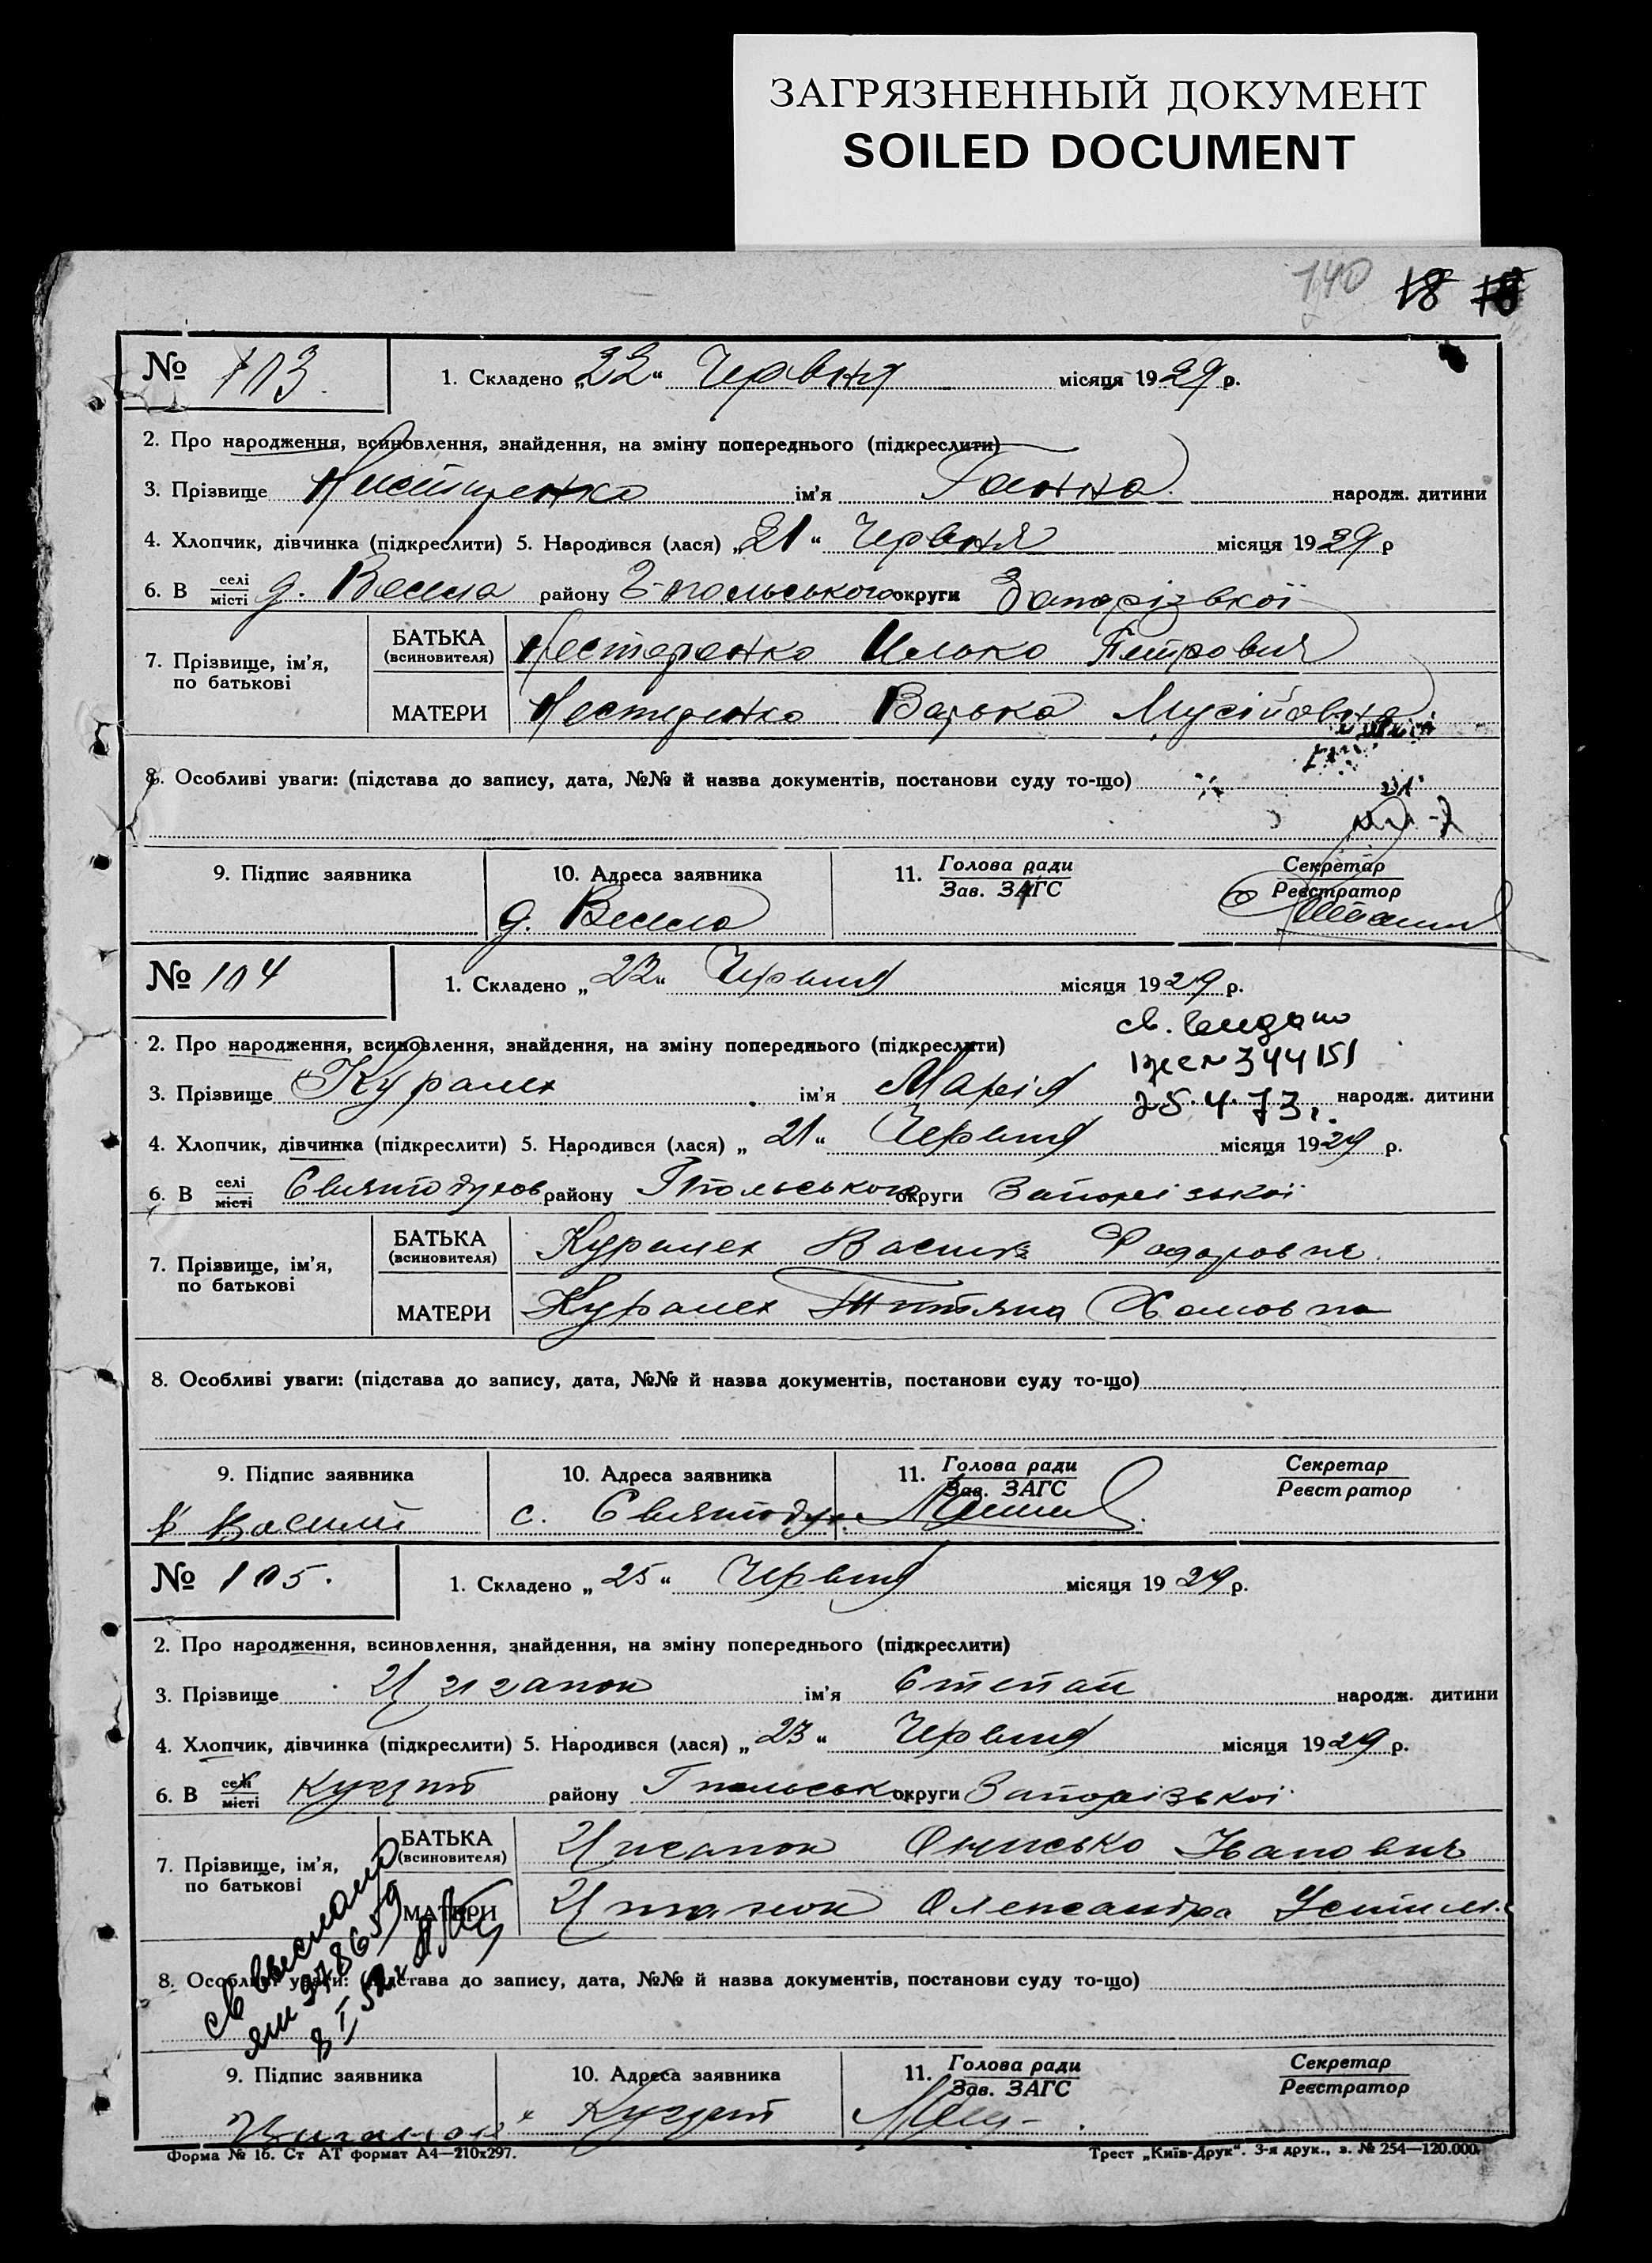 ЗАГРЯЗНЕННЫЙ ДОКУМЕНТ
SOILED DOCUMENT
140 18 18
№ 103. 1. Складено „22“ Червня місяця 1929 р.
2. Про народження, всиновлення, знайдення, на зміну попереднього (підкреслити)
3. Прізвище Нестеренко ім'я Ганна народж. дитини
4. Хлопчик, дівчинка (підкреслити) 5. Народився (лася) „21“ Червня місяця 1929 р
6. В селі/місті д. Весела району Г-польського округи Запорізької
7. Прізвище, ім'я, по батькові
БАТЬКА (всиновителя) Нестеренко Илько Петрович
МАТЕРИ Нестеренко Варька Мусійовна
8. Особливі уваги: (підстава до запису, дата, №№ й назва документів, постанови суду то-що)
9. Підпис заявника 10. Адреса заявника 11. Голова ради/Зав. ЗАГС Секретар/Реєстратор
д. Весела
№ 104 1. Складено „22“ Червня місяця 1929 р.
св. видано
2. Про народження, всиновлення, знайдення, на зміну попереднього (підкреслити)
344151
3. Прізвище ім'я Марія народж. дитини
25.4.73г.
4. Хлопчик, дівчинка (підкреслити) 5. Народився (лася) „21“ Червня місяця 1929 р.
6. В селі/місті Святодухов району Гпольського округи Запорізької
7. Прізвище, ім'я, по батькові
БАТЬКА (всиновителя) Василь Федорович
МАТЕРИ Титяна Хомовна
8. Особливі уваги: (підстава до запису, дата, №№ й назва документів, постанови суду то-що)
9. Підпис заявника 10. Адреса заявника 11. Голова ради/Зав. ЗАГС Секретар/Реєстратор
с. Святодух.
№ 105. 1. Складено „25“ Червня місяця 1929 р.
2. Про народження, всиновлення, знайдення, на зміну попереднього (підкреслити)
3. Прізвище Циганок ім'я Степан народж. дитини
4. Хлопчик, дівчинка (підкреслити) 5. Народився (лася) „23“ Червня місяця 1929 р.
6. В селі/місті району Гпольськ. округи Запорізької
7. Прізвище, ім'я, по батькові
БАТЬКА (всиновителя) Циганок Онисько Іванович
МАТЕРИ Циганок Олександра Устим.
св выслано
378659
8. Особливі уваги: (підстава до запису, дата, №№ й назва документів, постанови суду то-що)
9. Підпис заявника 10. Адреса заявника 11. Голова ради/Зав. ЗАГС Секретар/Реєстратор
Циганок
Форма № 16. Ст АТ формат А4—210x297. Трест „Київ-Друк“. 3-я друк., з. № 254—120.000.